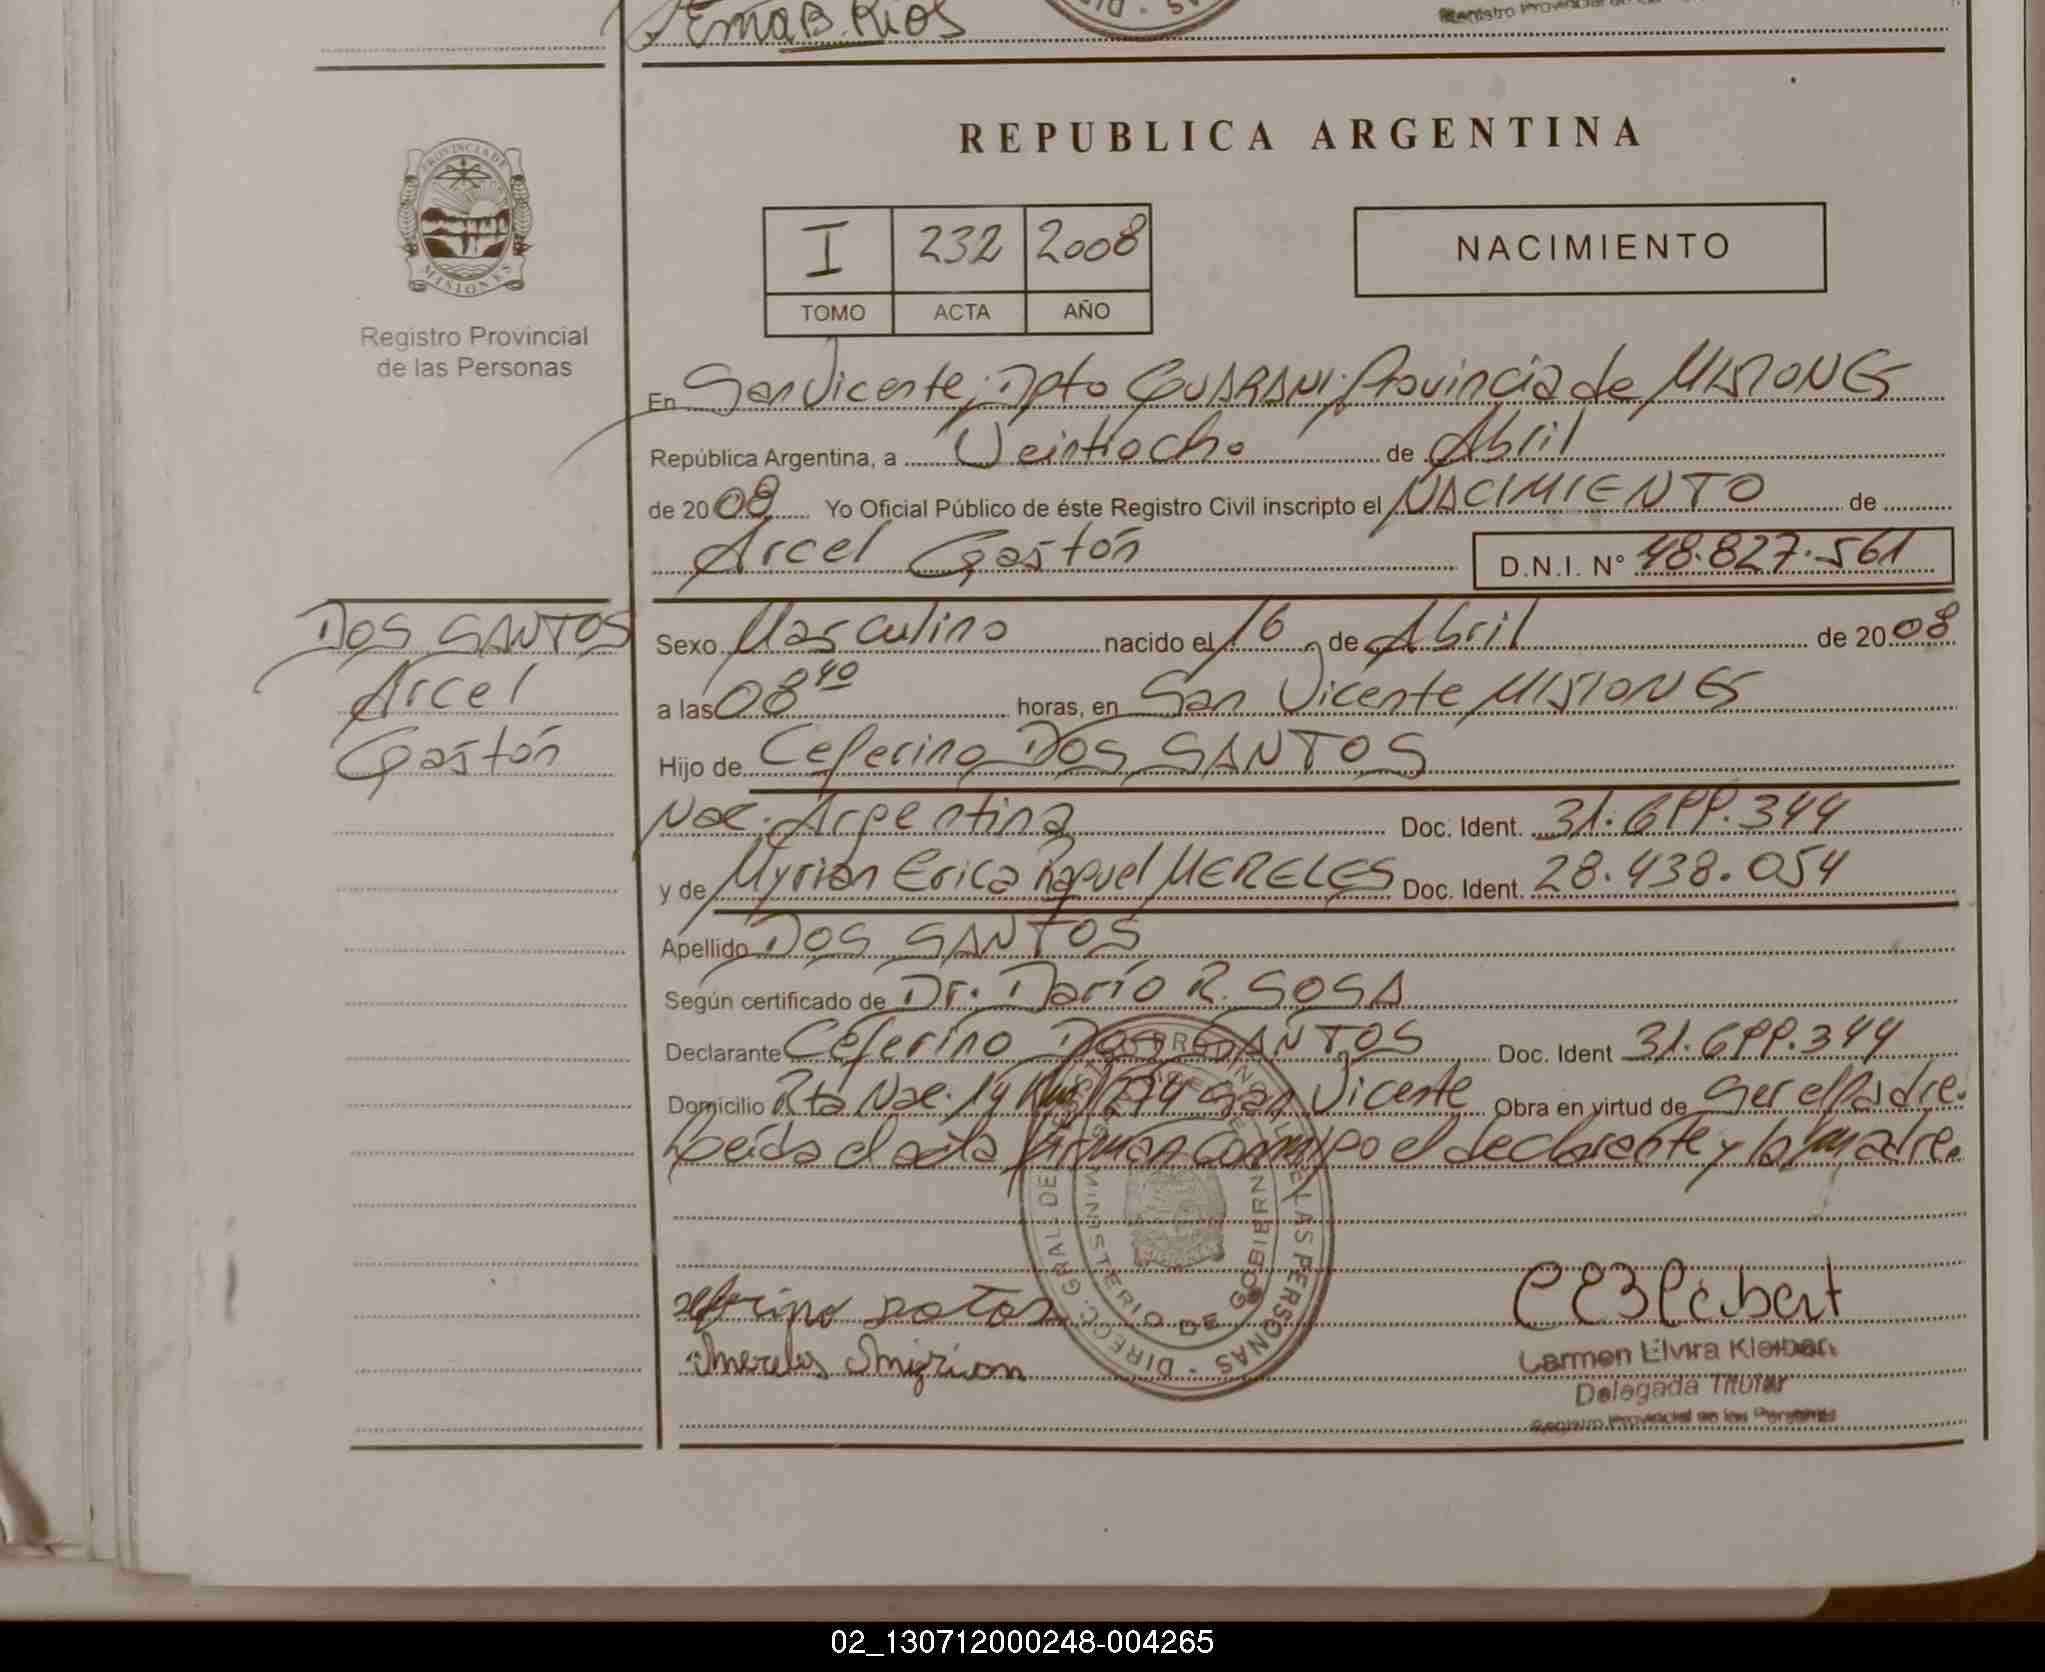 Ema B. Rios
REPUBLICA ARGENTINA
PROVINCIA DE
MISIONES
Registro Provincial
de las Personas
I 232 2008
TOMO ACTA AÑO
NACIMIENTO
En San Vicente; Dpto GUARANI; Provincia de MISIONES
República Argentina, a Veintiocho de Abril
de 2008 Yo Oficial Público de éste Registro Civil inscripto el NACIMIENTO de
Arcel Gastón D.N.I. N° 48.827.561
DOS SANTOS
Arcel
Gastón
Sexo Masculino nacido el 16 de Abril de 2008
a las 08 40 horas, en San Vicente MISIONES
Hijo de Ceferino DOS SANTOS
Nac. Argentina Doc. Ident. 31.699.344
y de Myrian Erica Raquel MERELES Doc. Ident. 28.438.054
Apellido DOS SANTOS
Según certificado de Dr. Darío R. SOSA
Declarante Ceferino DOS SANTOS Doc. Ident 31.699.344
Domicilio Rta Nac. 14 Km San Vicente Obra en virtud de ser el Padre.
Leída el acta firman conmigo el declarante y la madre.
DIRECC. GRAL. DE LAS PERSONAS
MINISTERIO DE GOBIERNO
Carmen Elvira Kleibert
Delegada Titular
Registro Provincial de las Personas
02_130712000248-004265